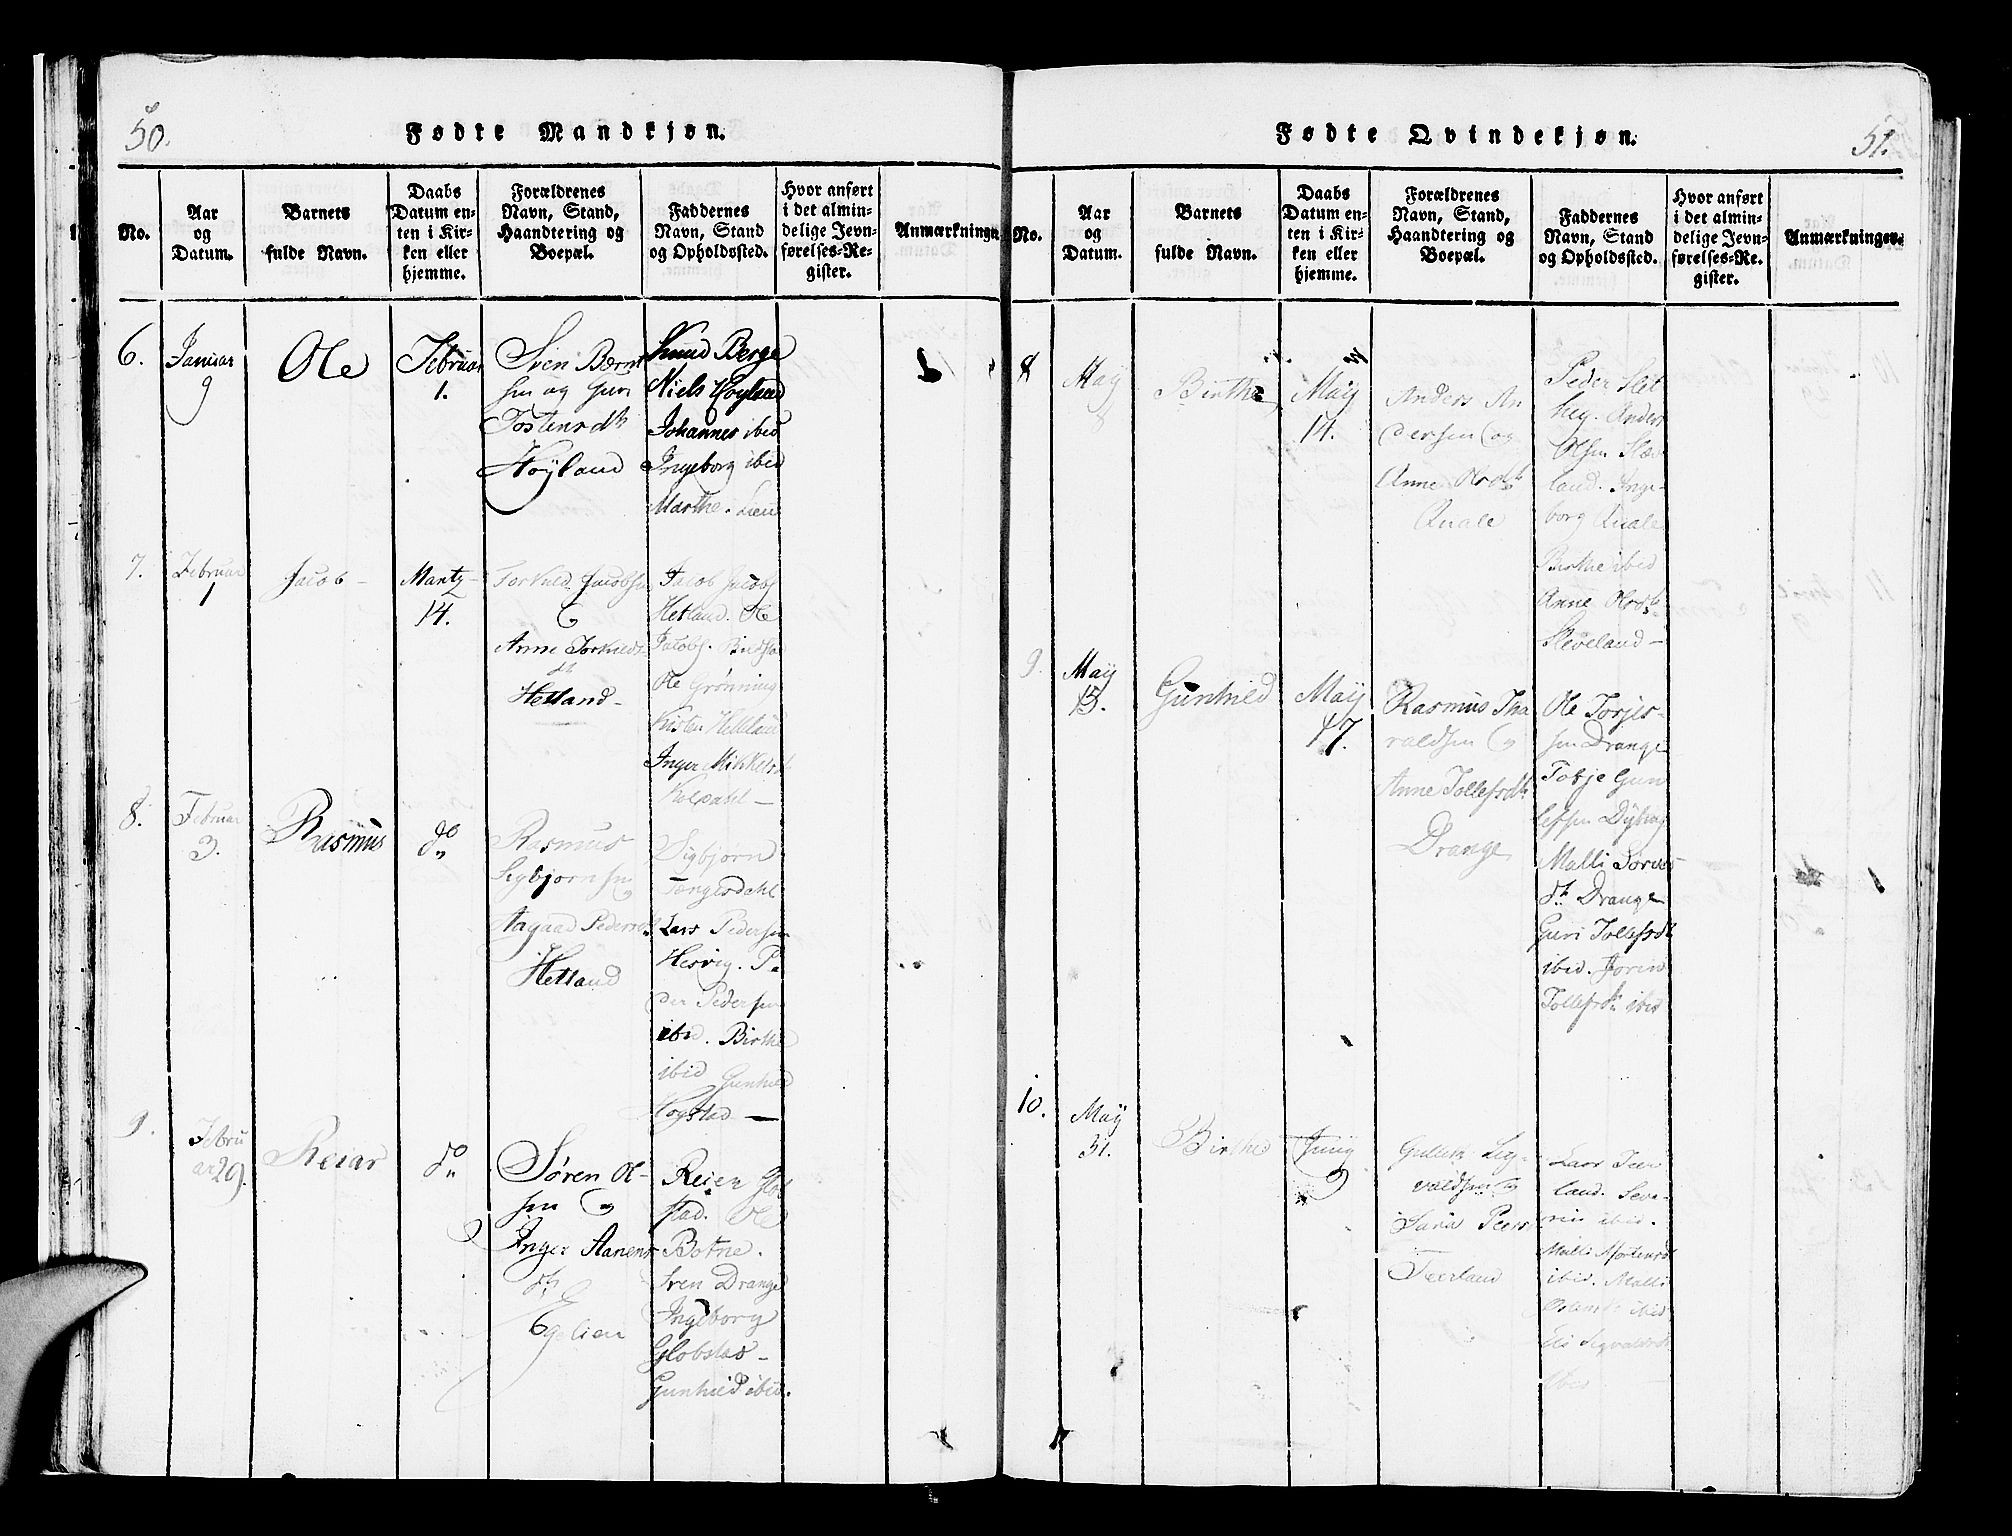 50.
Fødte Mandkjøn.
No.
Aar
og
Datum.
Barnets
fulde Navn.
Daabs
Datum en-
ten i Kir-
ken eller
hjemme.
Forældrenes
Navn, Stand,
Haandtering og
Boepæl.
Faddernes
Navn, Stand
og Opholdssted.
Hvor anført
i det almin-
delige Jevn-
førelses-Re-
gister.
Anmærkninger
6.
Januar
9
Ole
Februar
1.
Sven Bærnt
sen og Guri
Tostensdtr
Høyland
Knud Berge
Niels Høyland
Johannes ibid
Ingeborg ibid
Marthe Lien
7.
Februar
1
Jacob
Martz
14.
Torkild Jacobsen
og
Anne Torkilds
dtr
Hetland
Jacob Jacobs
Hetland. Ole
Jacobs.
Ole Grønning
Kirsten Helleland
Inger Mikkelsd
8.
Februar
3.
Rasmus
do
Rasmus
Sigbjørnsen
og
Aagaad Pedersdtr
Hetland
Sigbjørn
Tengesdahl
Lars Pedersen
Hesvig. Pe
der Pedersen
ibid. Birthe
ibid Gunhild
Høgstad
9.
Febru
ar 29.
Reiar
do
Søren Ol-
sen og
Inger Aanens
dtr
Egelien
Reier Glob
stad. Ole
Botne.
Sven Drange
Ingeborg
Globstad
Gunhild ibid.
51.
Fødte Qvindekjøn.
No.
Aar
og
Datum.
Barnets
fulde Navn.
Daabs
Datum en-
ten i Kir-
ken eller
hjemme.
Forældrenes
Navn, Stand,
Haandtering og
Boepæl.
Faddernes
Navn, Stand
og Opholdssted.
Hvor anført
i det almin-
delige Jevn-
førelses-Re-
gister.
Anmærkninger.
8
May
Birthe
May
14.
Anders An
dersen og
Anne Olsdtr
Quale
Peder Slet
hey. Anders
Olsen Slæv
land. Inge-
borg Quale
Birthe ibid
Anne Olsdtr
Sleveland
9.
May
13.
Gunhild
May
17.
Rasmus Tha
raldsen og
Anne Tollefsdtr
Drange
Ole Torjer-
sen Drange
Tobje Gun
lefsen Dÿbing
Malli Sørens
dtr Drange
Guri Tollefsdtr
ibid. Joren
Tollefsdtr ibid
10.
May
31.
Birthe
Juny
9
Gulleik Sig-
valdsen og
Sara Peers
Teerland
Lars Teer
land. Seve-
rin ibid.
Malli Mortensdtr
ibid. Malli
ibid
Eli Sigvaldsdtr
ibid